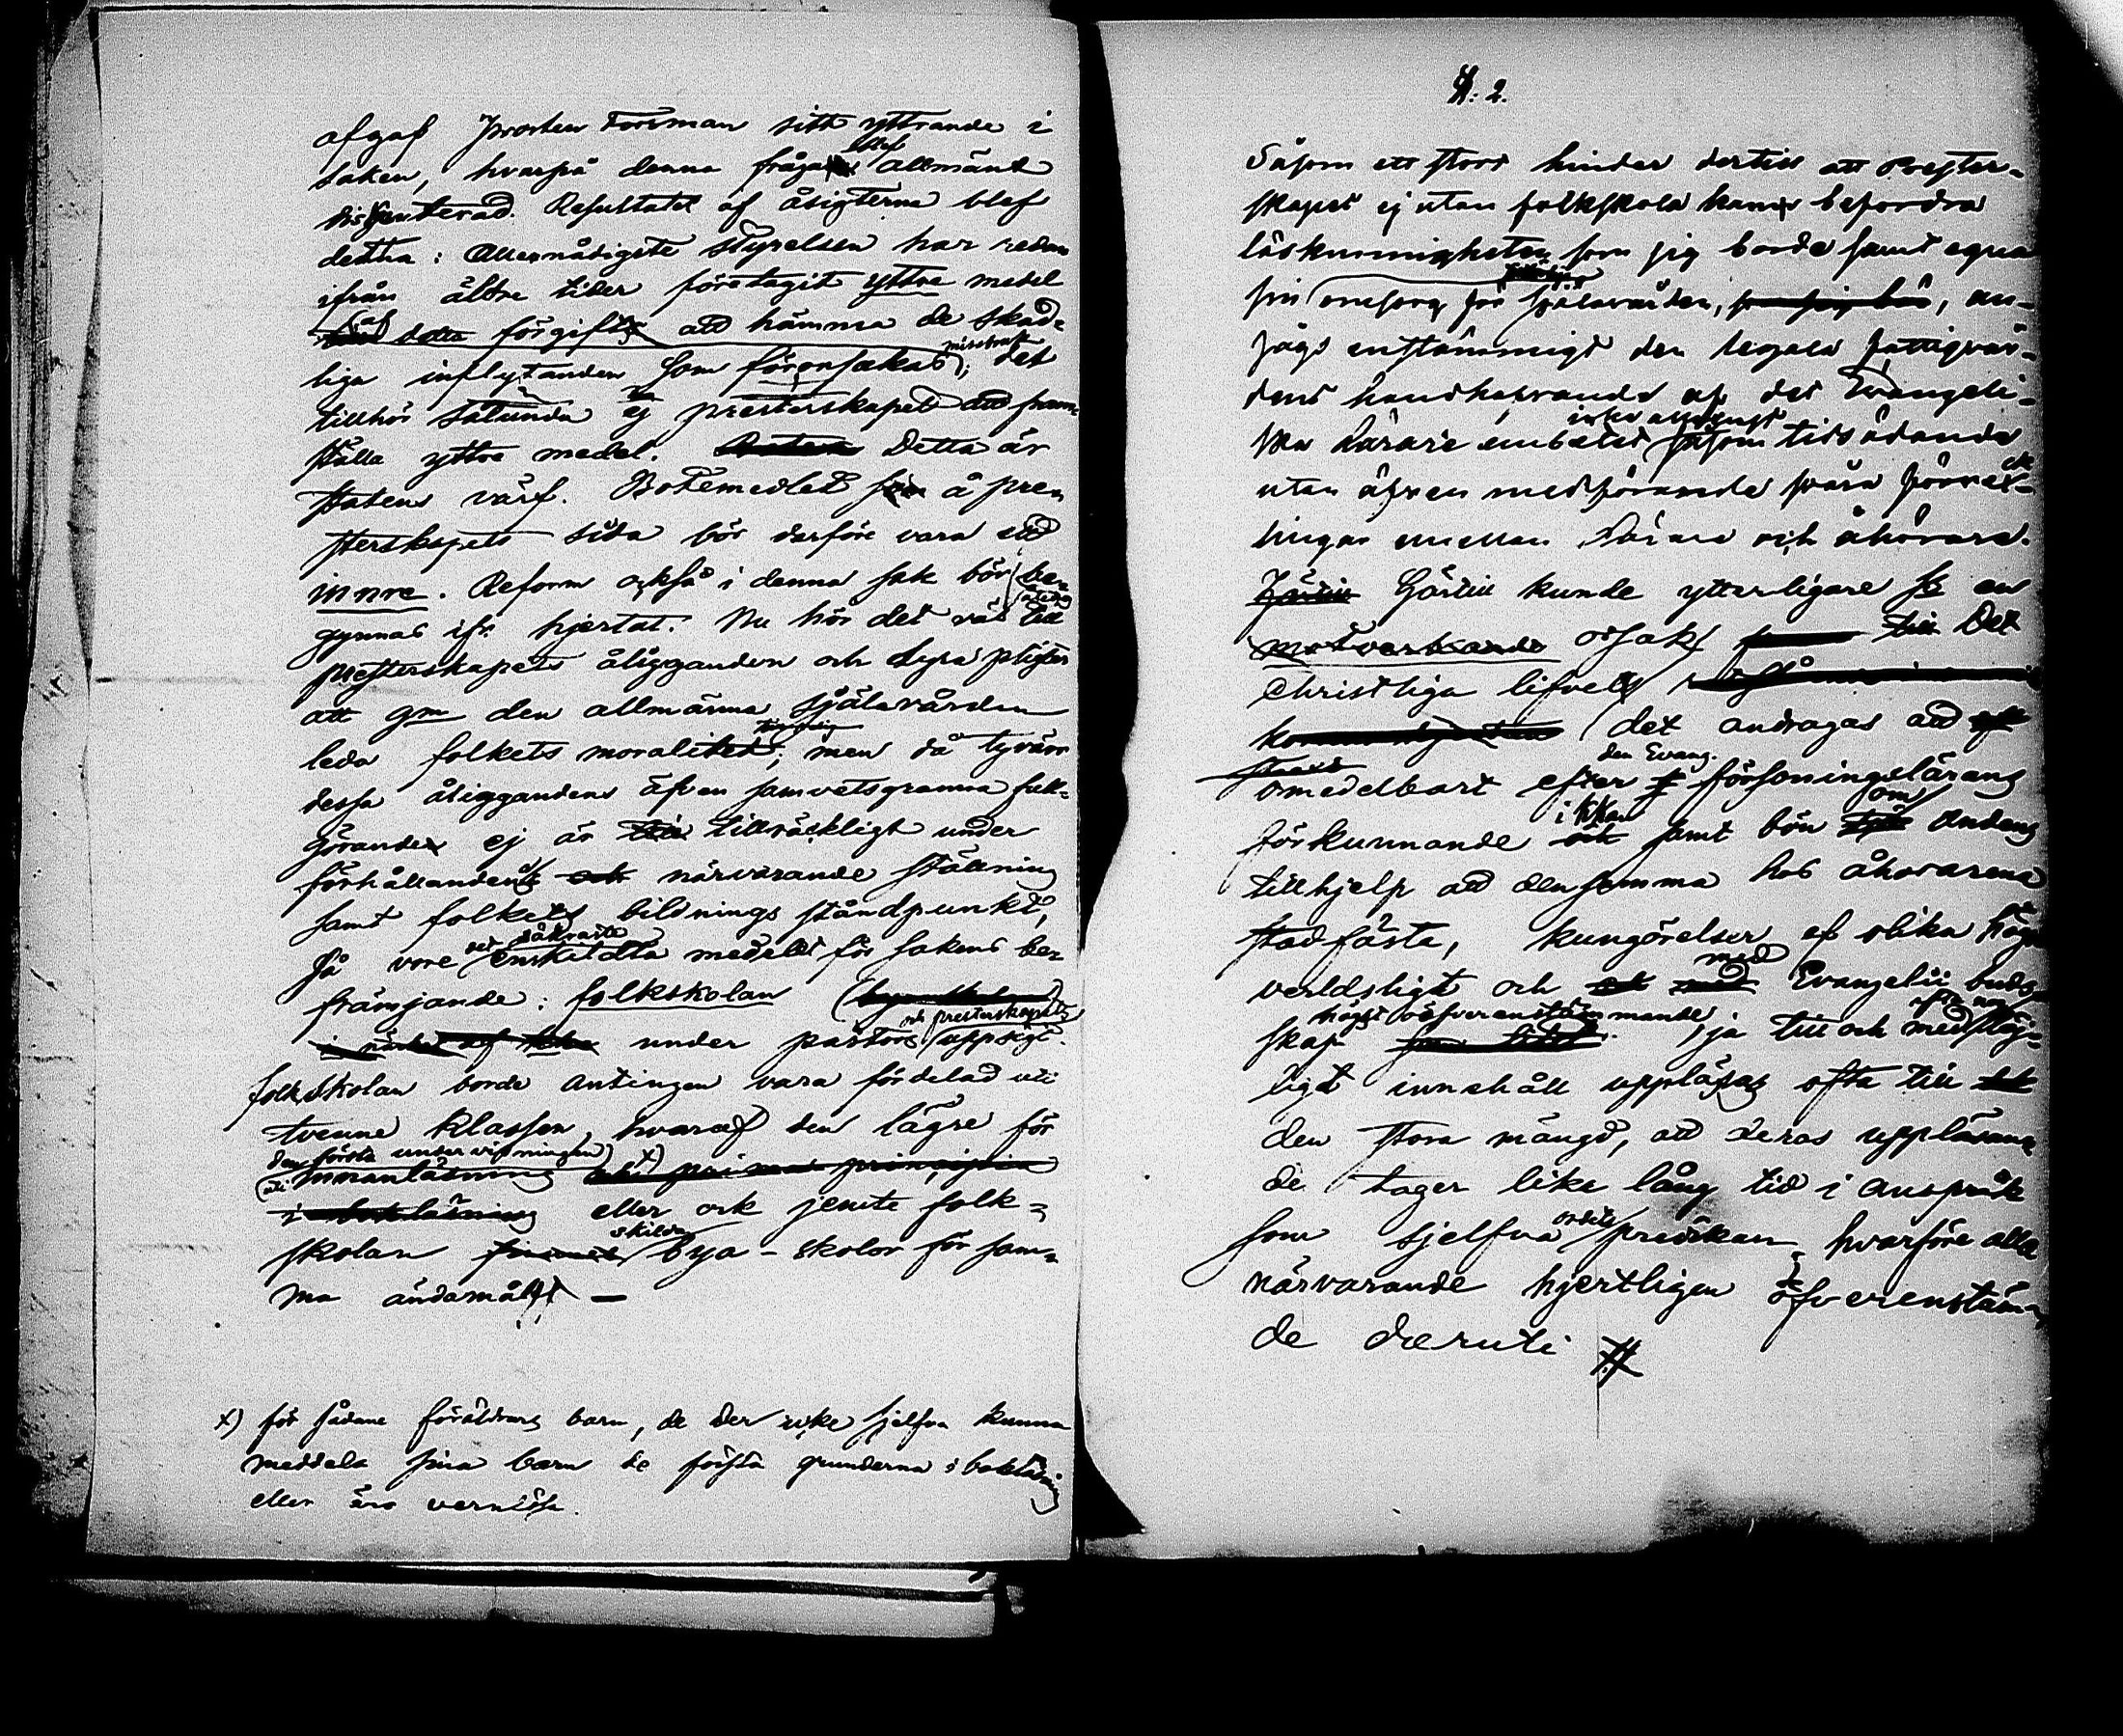 afgaf Prosten Forsman sitt yttrande i
saken, hvarpå denna fråga blef allmänt
diskuterad. Resultatet af åsigterna blef
detta: Allernådigste styrelsen har redan
ifrån äldre tider företagit yttre medel
af detta förgift att hämma de skad-
liga inflytanden som förorsakas; missbruk det
tillhör sålunda ej presterskapet att fram-
ställa yttre medel. Detta är
statens värf. Botemedlet å pre-
sterskapets sida bör derföre vara ett
inre. Reform också i denna sak bör be-
gynnas ifr. hjertat. Nu hör det väl till
presterskapets åligganden och dyra pligter
att gm den allmänna själavården
leda folkets moralitet; men då tyvärr
dessa åliggandens äfven samvetsgranna full-
görande ej är tillräckligt under
förhållandenas närvarande ställning
samt folkets bildnings ståndpunkt,
så vore det säkraste enskildta medlet för sakens be-
främjande: folkskolan
under pastors och presterskapets uppsigt.
folkskolan borde antingen vara fördelad uti
tvenne klasser, hvaraf den lägre för
den första undervisningen x)
uti innanläsning
eller ock jemte folk-
skolan skilda bya-skolor för sam-
ma ändamål. —
x) för sådane föräldrars barn, de der icke sjelfva kunna
meddela sina barn de första grunderna i bokläsning
eller äro vernlösa.
§. 2.
Såsom ett stort hinder dertill att Prester-
skapet ej utan folkskola kan befordra
läskunnigheten som sig borde samt egna
sin omsorg för själavården, an-
sågs enstämmigt den legala fattigvår-
dens handhafvande af det Evangeli-
ska Lärare embetet icke allenast såsom tidsödande
utan äfven medförande svåra förveck-
lingar emellan Lärare och åhörare.
Härtill kunde ytterligare se en
motverkande orsak till Det
Christliga lifvets
det andragas att
straxt
omedelbart efter den Evang. försoningslärans
förkunnande i kkan samt bön om Andans
tillhjelp att densamma hos åhörarena
stadfästa, kungörelser af olika högst
verldsligt och med Evangelii buds-
skap högst oöfverenstämmande, ja till och med ofta nog löj-
ligt innehåll uppläsas ofta till
den stora mängd, att deras uppläsan-
de tager lika lång tid i anspråk
som sjelfva ordets predikan, hvarföre alla
närvarande hjertligen öfverenstäm-
de deruti